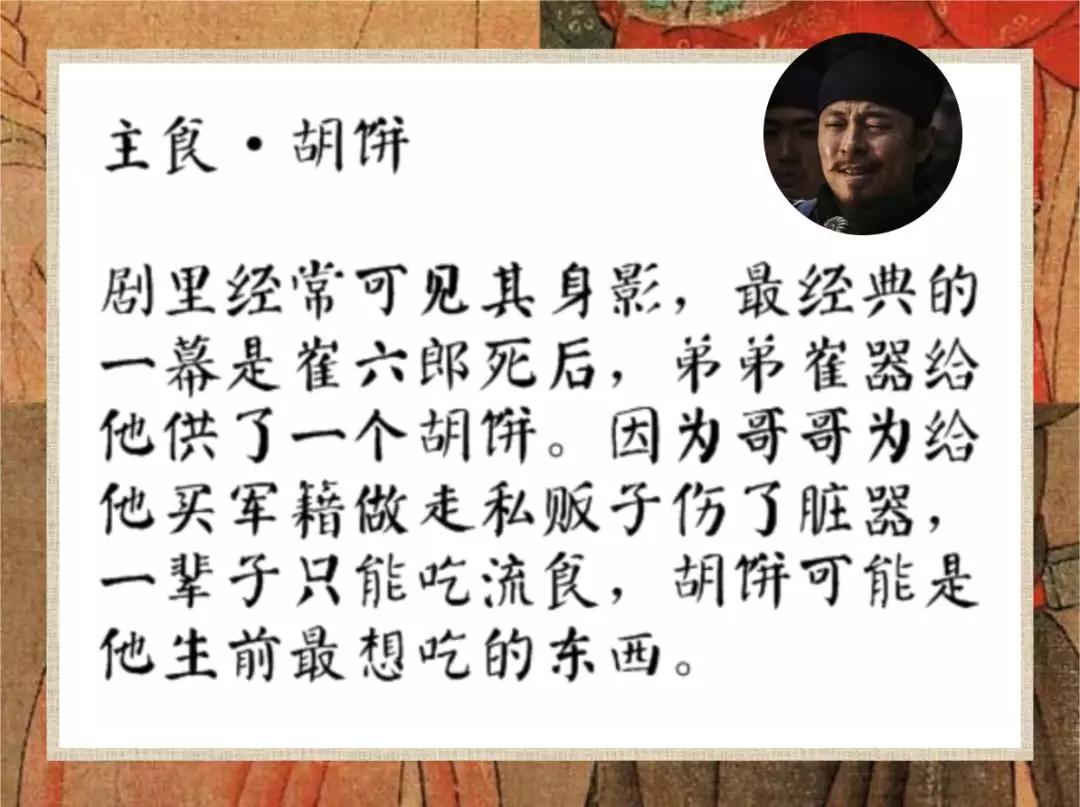 主食·胡饼
剧里经常可见其身影，最经典的
一幕是崔六郎死后，弟弟崔器给
他供了一个胡饼。因为哥哥为给
他买军籍做走私贩子伤了脏器，
一辈子只能吃流食，胡饼可能是
他生前最想吃的东西。